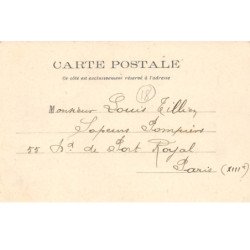 CARTE POSTALE
Ce côté est exclusivement réservé à l'adresse
18
Monsieur Louis Tillier
Sapeurs Pompiers
55 Bd de Port Royal
Paris (XIIIe)